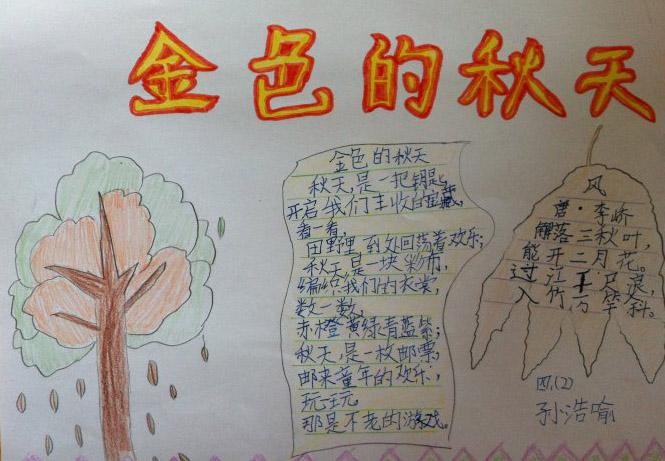 金色的秋天
金色的秋天
秋天,是一把钥匙,
开启我们丰收的宝藏,
看一看,
田野里到处回荡着欢乐;
秋天,是一块彩布,
编织我们的衣裳,
数一数,
赤橙黄绿青蓝紫;
秋天,是一枚邮票,
邮来童年的欢乐,
玩一玩,
那是不老的游戏。
风
唐·李峤
解落三秋叶,
能开二月花。
过江千尺浪,
入竹万竿斜。
四.(2)
孙浩喻